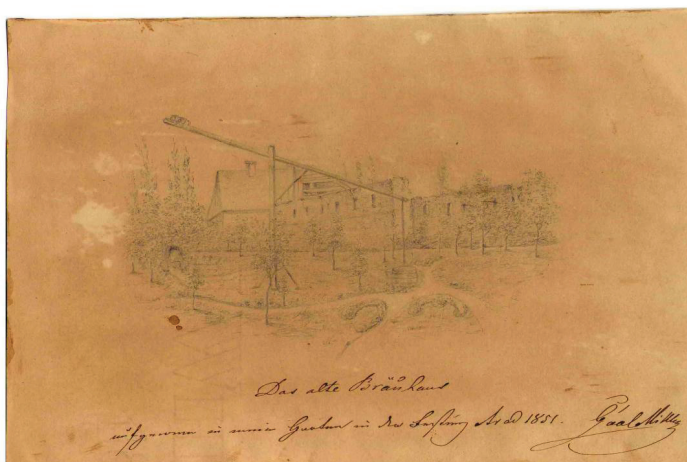 Das alte Bräuhaus
aufgenommen in meinem Garten in der Festung Arad 1851. Gáal Miklós